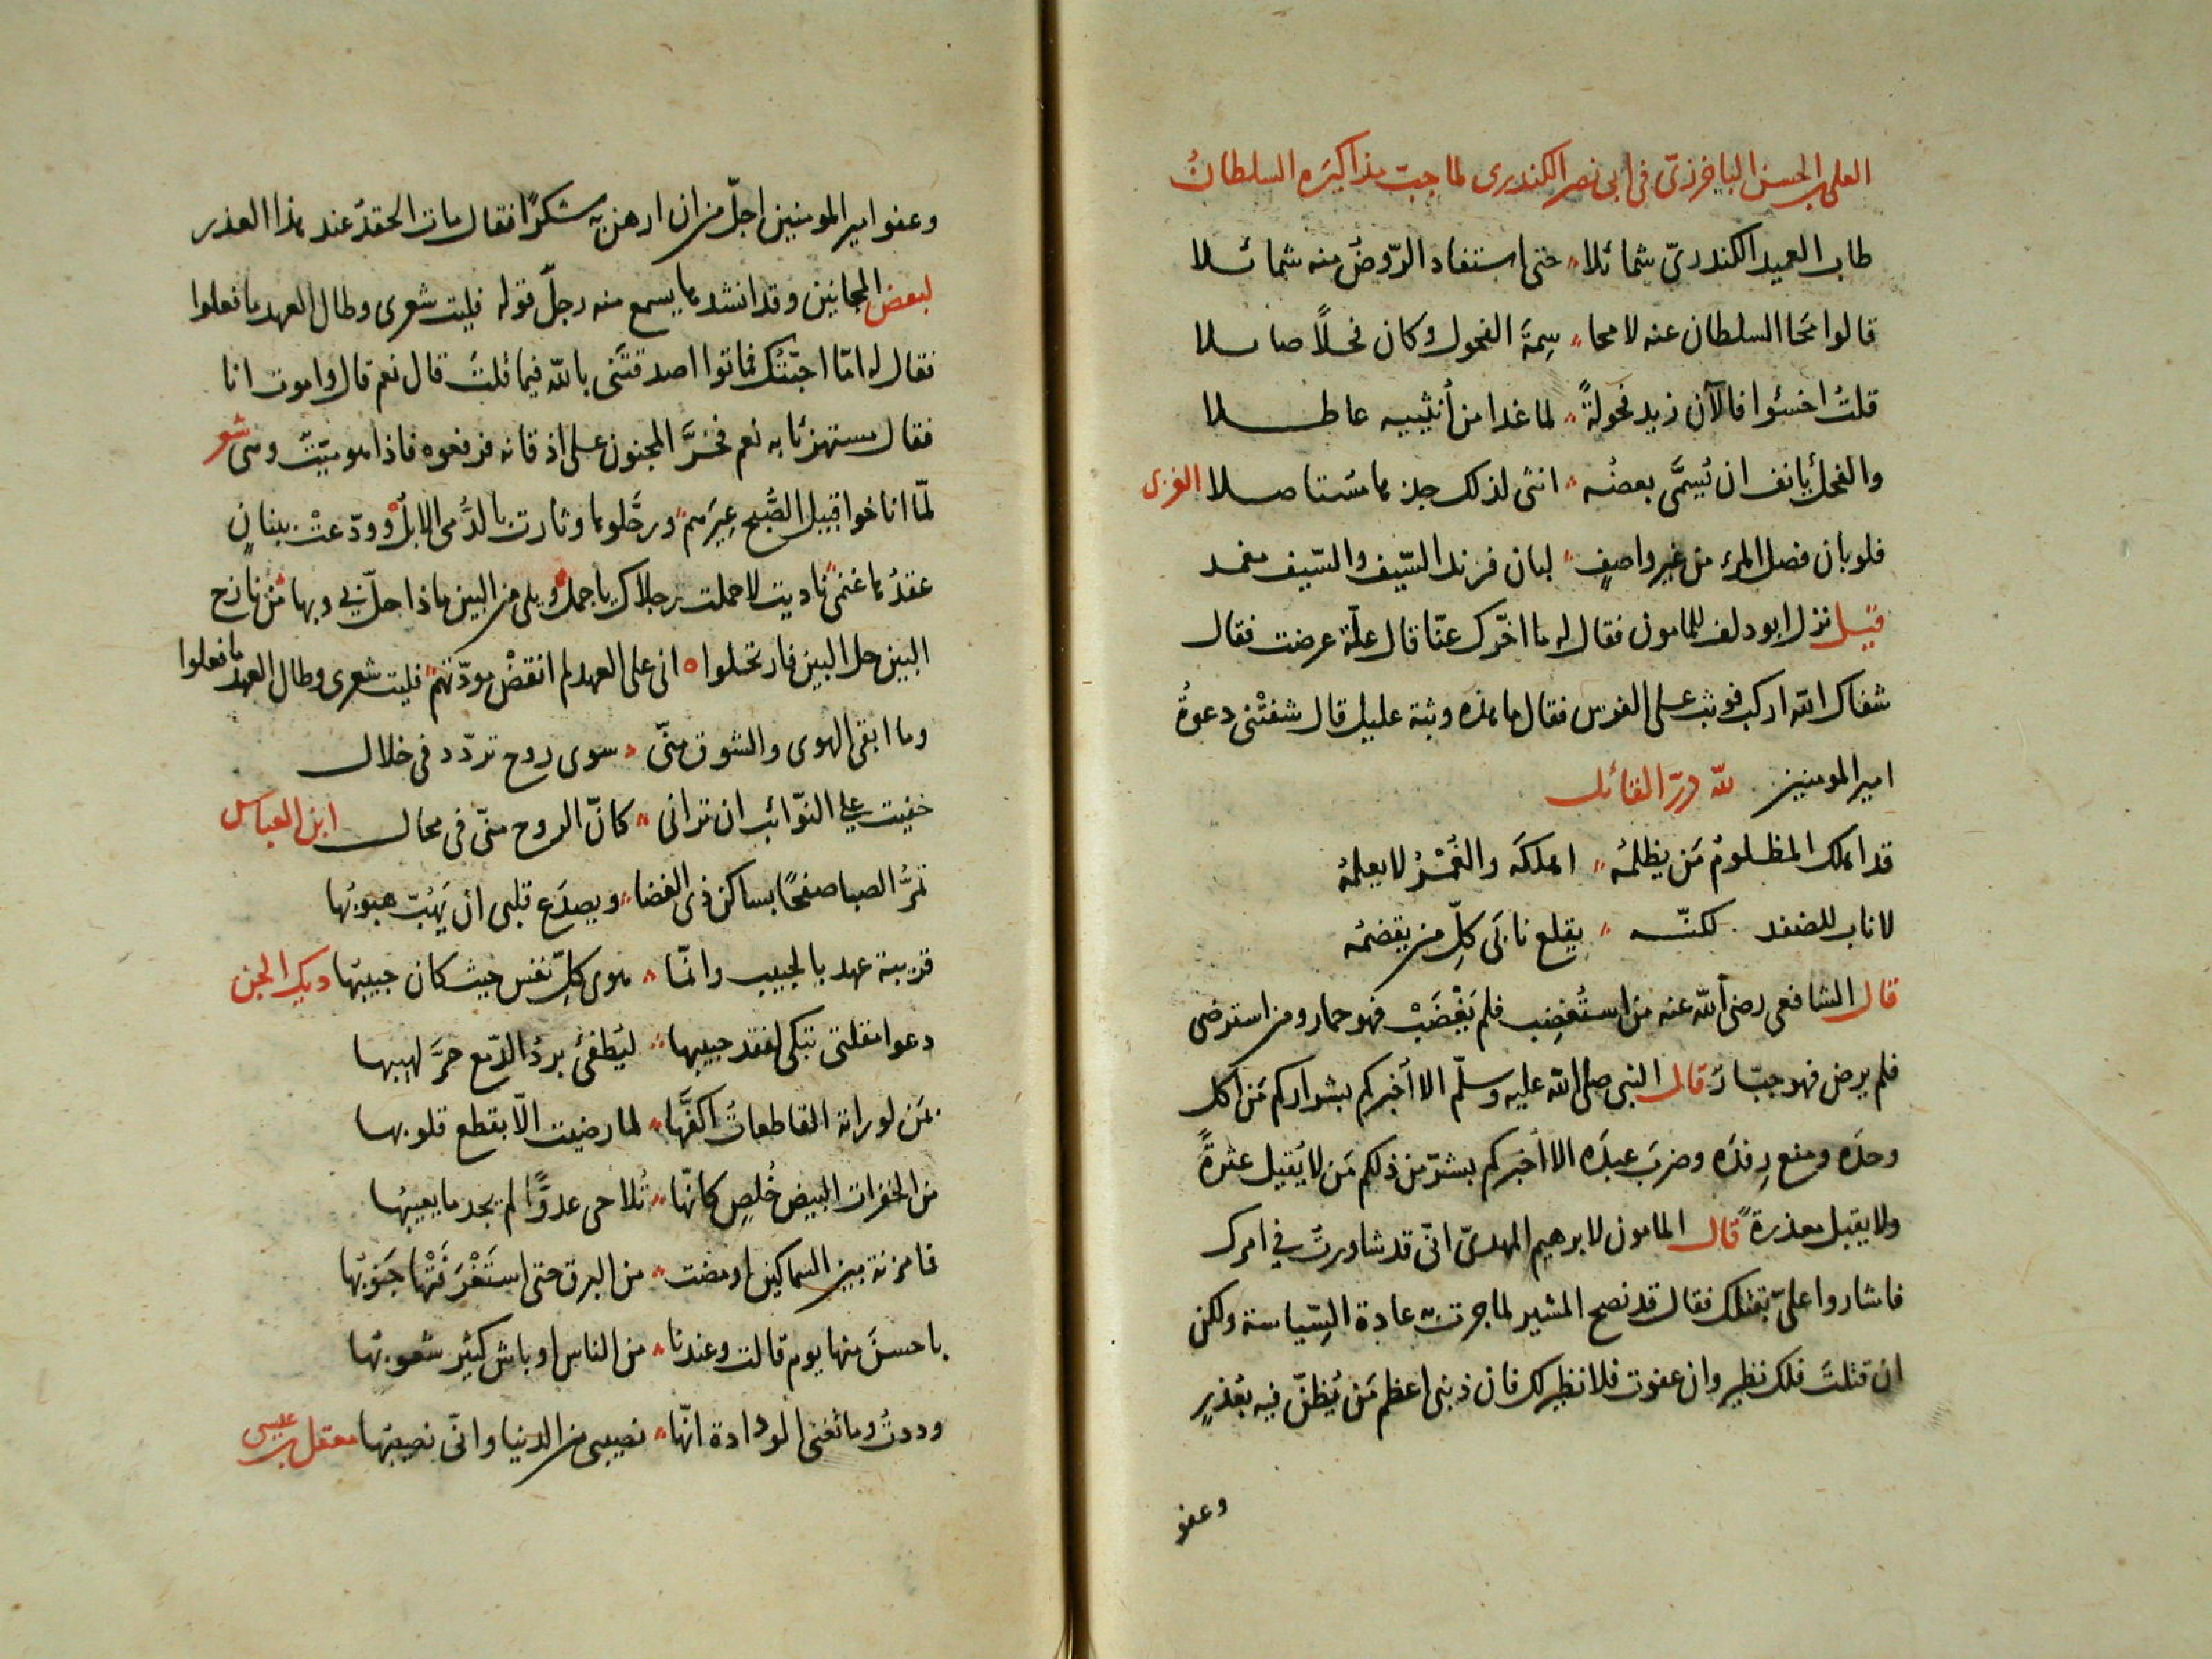 العلى بن الحسن الباخرزى فى ابى نصر الكندرى لما جبت مذاكيره السلطانُ
طاب العميد الكندرىّ شمائلا حتى استفاد الرّوضُ منه شمائلا
قالوا مَحَا السلطان عنه لا محا سِمَةَ الفحول وكان فحلاً صائلا
قلتُ اخسئوا فالآن زيد فحولةً لما غدا من أنثييه عاطلا
والفحل يأنف ان يُسمَّى بعضُه انثى لذلك جذها مستاصلا الغزى
فلو بان فضل المرء من غير واصفٍ لبان فرند السّيف والسّيف مغمد
قيل نزل ابو دلف للمامون فقال له ما اخّرك عنّا قال علّة عرضت فقال
شفاك الله اركب فوثب على الفرس فقال ما هذه وثبة عليل قال شفتْنى دعوةُ
امير المومنين لله درّ القائل
قد اهلك المظلومُ مَن يظلمُه اهلكَه والغُمْرُ لا يعلمُه
لا ناب للضفد لكنّه يقلع نابَى كلِّ من يقضمُه
قال الشافعى رضى الله عنه من استُغضِب فلم يَغْضَبْ فهو حمار ومن استرضى
فلم يرض فهو جبّار قال النبى صلى الله عليه وسلّم الا أخبركم بشراركم مَن اكل
وحدَه ومنع رِفدَه وضربَ عبدَه الا أخبركم بشرّ من ذلكم مَن لا يُقيل عثرةً
ولا يقبل معذرةً قال المامون لابرهيم المهدىّ انّى قد شاورتُ فى امرك
فاشاروا علىّ بقتلك فقال قد نصح المشير لما جرت به عادة السّياسة ولكن
ان قتلتَ فلك نظير وان عفوت فلا نظير لك فان ذنبى اعظم مَن يُظنّ فيه بعُذرٍ
وعفو
وعفو امير المومنين اجلّ من ان ارهن به شكرًا فقال مات الحقدُ عند هذا العذر
لبعض المجانين وقد انشد ما يسمع منه رجلٌ قوله فليت شعرى وطال العهد ما فعلوا
فقال له امّا احبّتك فماتوا اصدقتَنى بالله فيما قلتَ قال نعم قال واموت انا
فقال مستهزئا به نعم فخرَّ المجنون على اذقانه فرفعوه فاذا هو ميّتٌ ومى شعر
لمّا اناخوا قبيل الصُّبح عِيرَهم ورحَّلوها وثارت بالدُّمى الابلُ وودّعتْ ببنانٍ
عقدُها عنمٌ ناديت لا حملت رجلاك يا جملُ ويلى من البين ماذا حلّ بى وبها من نازح
البين حل البين فارتحلوا انى على العهد لم انقضْ مودّتَهم فليت شعرى وطال العهد ما فعلوا
وما ابقى الهوى والشوق منّى سوى روح تردّد فى خلال
خفيت على النّوائب ان ترانى كانّ الروح منّى فى محال ابن العباس
تمرُّ الصبا صفحًا بساكن ذى الغضا ويصدَع قلبى ان يَهُبّ هبوبُها
قريبة عهد بالحبيب وانّما هوى كلِّ نفس حيث كان حبيبُها ديك الجن
دعوا مقلتى تبكى لفقد حبيبها ليُطفئ بردُ الدّمع حرَّ لهيبها
بمَن لو راته القاطعاتُ اكفَّها لما رضيت الّا بقطع قلوبها
من الخفرات البيض خُلصٍ كانّها تُلاحى عدوًّا لم يجد ما يعيبُها
فما مزنة بين السماكين اومضت من البرق حتى استَغْرَقَتْها جَنوبُها
باحسنَ منها يوم قالت وعندنا من الناس اوباش كثير شعوبُها
وددتُ وما تغنى الودادة انّها نصيبى من الدنيا وانّى نصيبُها معقل بن عيسى